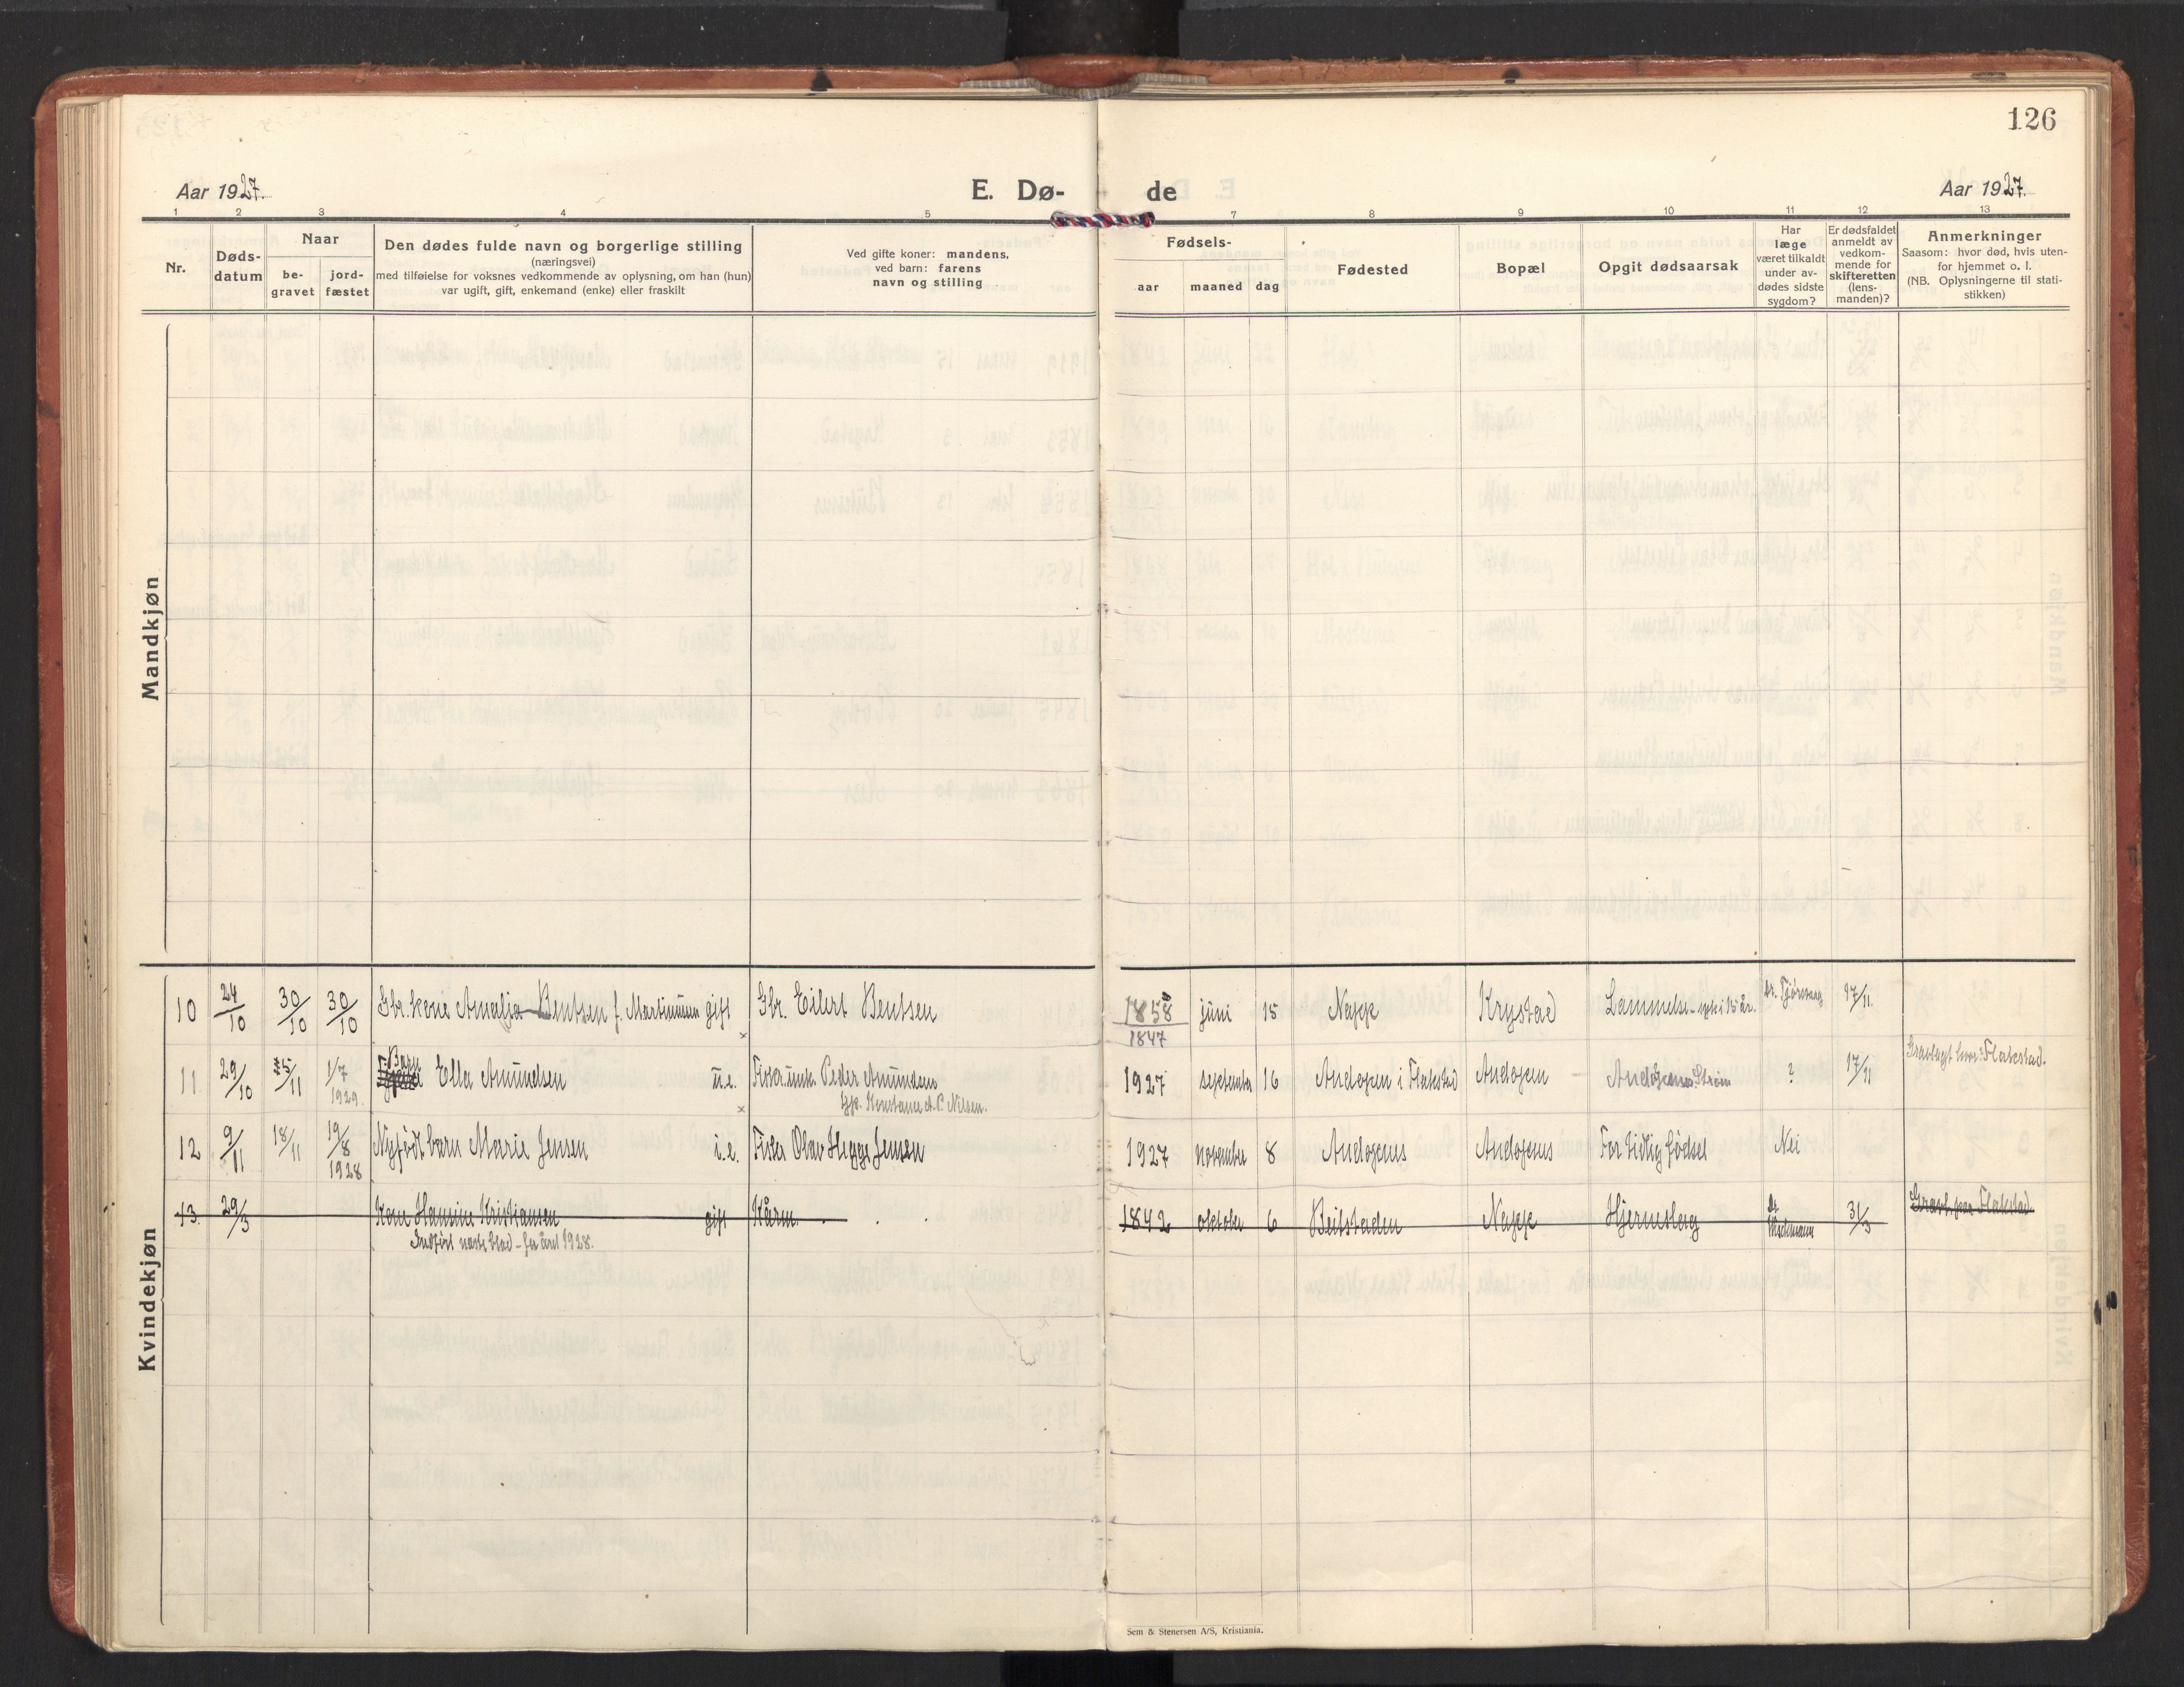 126
Aar 1927.
E. Dø-
de
Aar 1927.
1 2 3 4 5 7 8 9 10 11 12 13
Nr.
Døds-
datum
Naar
be-
gravet
jord-
fæstet
Den dødes fulde navn og borgerlige stilling
(næringsvei)
med tilføielse for voksnes vedkommende av oplysning, om han (hun)
var ugift, gift, enkemand (enke) eller fraskilt
Ved gifte koner: mandens,
ved barn: farens
navn og stilling
Fødsels-
aar
maaned
dag
Fødested
Bopæl
Opgit dødsaarsak
Har
læge
været tilkaldt
under av-
dødes sidste
sygdom?
Er dødsfaldet
anmeldt av
vedkom-
mende for
skifteretten
(lens-
manden)?
Anmerkninger
Saasom: hvor død, hvis uten-
for hjemmet o. l.
(NB. Oplysningerne til stati-
stikken)
Mandkjøn
Kvindekjøn
10 24/10 30/10 30/10 Gbr. kone Amalja Bentsen f. Martinusen gift Gbr. Eilert Bentsen 1858 juni 15 Napp Krystad Lammelse 17/11.
1847
11 29/10 5/11 1/7 1929. Barn Ella Amundsen u.e. Peder Amundsen 1927 september 16 Andopen i Flakstad Andopen ? 17/11 Flakstad.
Nilsen.
12 9/11 18/11 19/8 1928 Nyfødt barn Marie Jensen i.e. Fisker Olav Hegge Jensen 1927 november 8 Andopens Andopens For tidlig fødsel Nei
13. 29/3 Kone Hansine Kristiansen gift Kårm. 1842 oktober 6 Beitstaden Napp Hjerneslag Dr. 31/3 Flakstad
Indført næste blad - for året 1928.
Sem & Stenersen A/S, Kristiania.